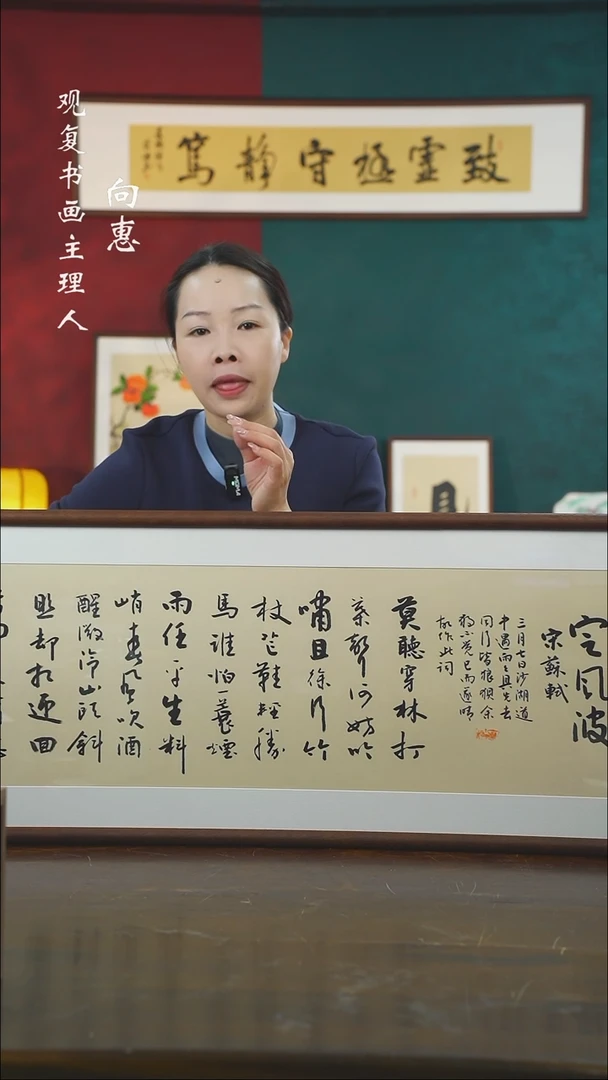 观复书画主理人
向惠
致虚極守静篤
定風波
宋蘇軾
三月七日沙湖道
中遇雨雨具先去
同行皆狼狽余
獨不覺已而遂晴
故作此词
莫聽穿林打
葉聲何妨吟
嘯且徐行竹
杖芒鞋輕勝
馬誰怕一蓑煙
雨任平生料
峭春風吹酒
醒微冷山头斜
照却相迎回